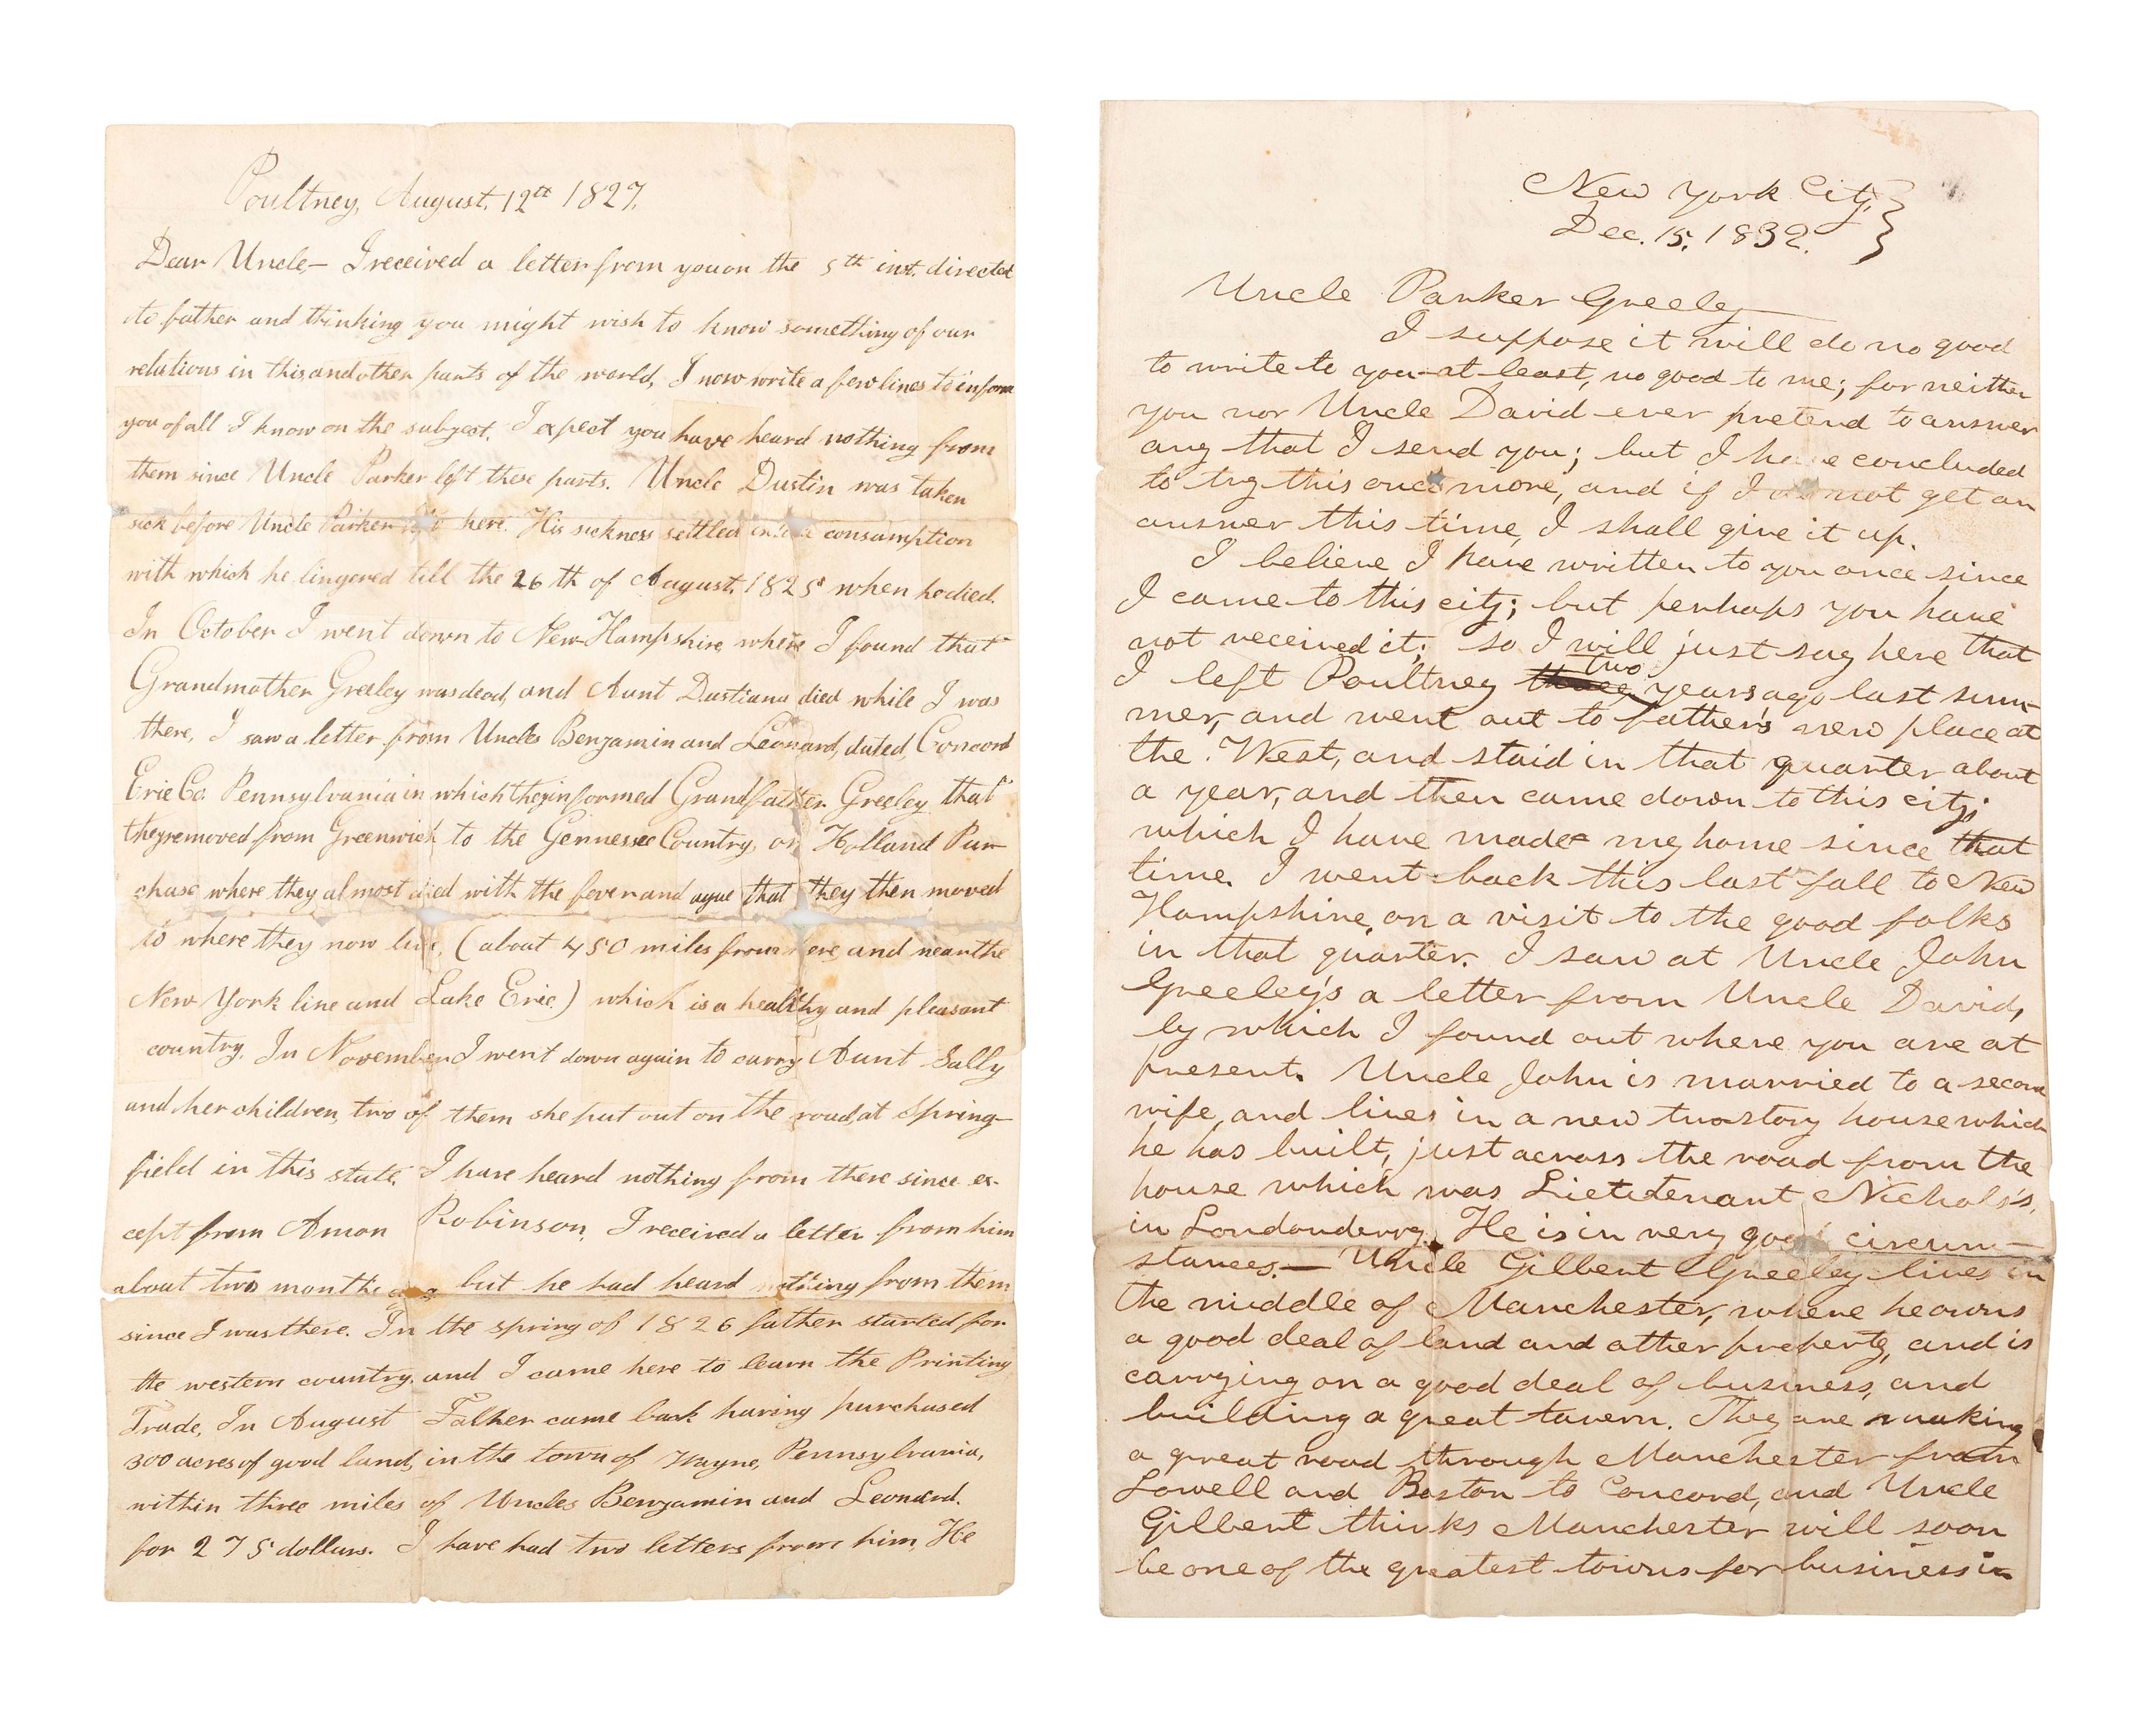 Poultney, August, 12th 1827.
Dear Uncle— I received a letter from you on the 5th inst. directed
to father and thinking you might wish to know something of our
relations in this, and other parts of the world, I now write a few lines to inform
you of all I know on the subject. I expect you have heard nothing from
them since Uncle Parker left these parts. Uncle Dustin was taken
sick before Uncle Parker here. His sickness settled consumption
with which he lingered till the 26th of August, 1825 when he died.
In October I went down to New-Hampshire where I found that
Grandmother Greeley was dead, and Aunt Dustiana died while I was
there, I saw a letter from Uncles Benjamin and Leonard, dated, Concord
Erie Co. Pennsylvania in which they informed Grandfather Greeley that
they removed from Greenwich to the Gennessee Country, or Holland Pur-
chase where they almost died with the fever and ague that they then moved
to where they now live, (about 450 miles from here and near the
New York line and Lake Erie.) which is a healthy and pleasant
country. In November I went down again to carry Aunt Sally
and her children, two of them she put out on the road, at Spring-
field in this state. I have heard nothing from there since ex-
cept from Amon Robinson, I received a letter from him
about two months ago but he had heard nothing from them
since I was there. In the spring of 1826 father started for
the western country, and I came here to learn the Printing
Trade, In August Father came back having purchased
300 acres of good land, in the town of Wayne, Pennsylvania,
within three miles of Uncles Benjamin and Leonard.
for 275 dollars. I have had two letters from him, He
New York City,
Dec. 15, 1832.
Uncle Parker Greeley
I suppose it will do no good
to write to you—at least, no good to me; for neither
you nor Uncle David ever pretend to answer
any that I send you; but I have concluded
to try this once more, and if I do not get an
answer this time, I shall give it up.
I believe I have written to you once since
I came to this city; but perhaps you have
not received it; so I will just say here that
I left Poultney three two years ago last sum-
mer, and went out to father's new place at
the West, and staid in that quarter about
a year, and then came down to this city;
which I have made my home since that
time. I went back this last fall to New
Hampshire, on a visit to the good folks
in that quarter. I saw at Uncle John
Greeley's a letter from Uncle David,
by which I found out where you are at
present. Uncle John is married to a second
wife, and lives in a new two story house which
he has built, just across the road from the
house which was Lietutenant Nichols's,
in Londonderry. He is in very good circum-
stances.— Uncle Gilbert Greeley lives in
the middle of Manchester, where he owns
a good deal of land and other property, and is
carrying on a good deal of business, and
building a great tavern. They are making
a great road through Manchester from
Lowell and Boston to Concord, and Uncle
Gilbert thinks Manchester will soon
be one of the greatest towns for business in